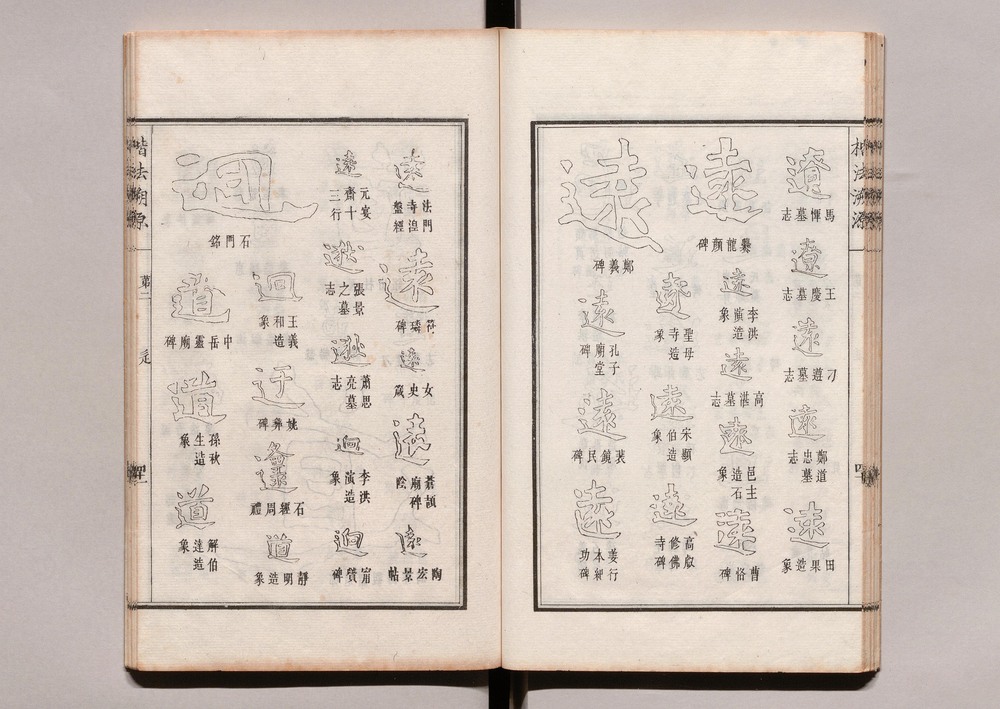 楷法溯源
遼
馬惲墓志
遼
王慶墓志
遠
刁遵墓志
遠
鄭道忠墓志
遠
田果造象
遠
爨龍顏碑
遠
李洪演造象
遠
高湛墓志
遠
邑主造石象
遠
曹恪碑
遠
鄭羲碑
遠
聖母寺造象
遠
宋顯伯造象
遠
高叡修佛寺碑
遠
孔子廟堂碑
遠
裴鏡民碑
遠
姜行本紀功碑
遠
法門寺湼盤經
遠
苻璘碑
遠
女史箴
遠
蒼頡廟碑陰
遠
陶宏景帖
遠
元宴齋十三行
逖
張景之墓志
逖
蕭思亮墓志
迥
李洪演造象
迥
甯贙碑
迥
石門銘
迥
王義和造象
迂
姚彝碑
邍
石經周禮
道
靜明造象
道
中岳靈廟碑
道
孫秋生造象
道
解伯達造象
楷法溯源
第二
辵